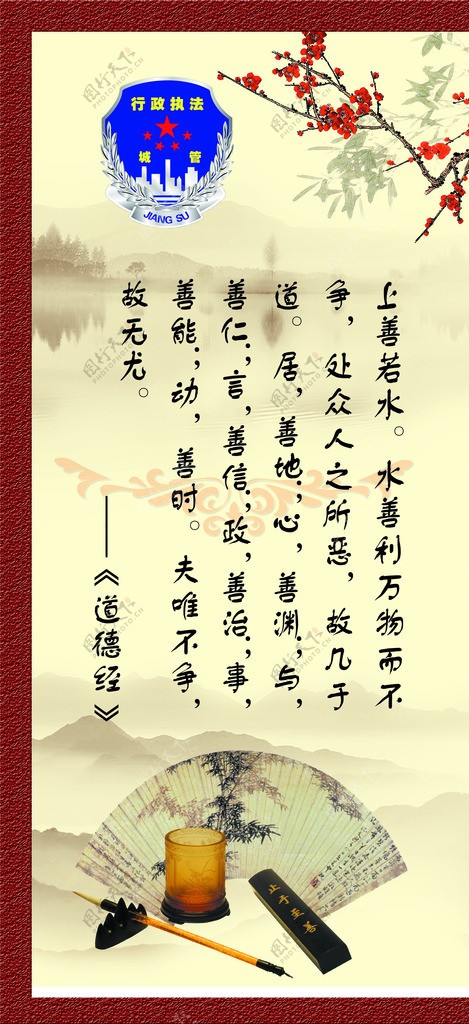 行政执法
城管
JIANG SU
上善若水。水善利万物而不
争，处众人之所恶，故几于
道。居，善地；心，善渊；与，
善仁；言，善信；政，善治；事，
善能；动，善时。夫唯不争，
故无尤。
——《道德经》
止于至善